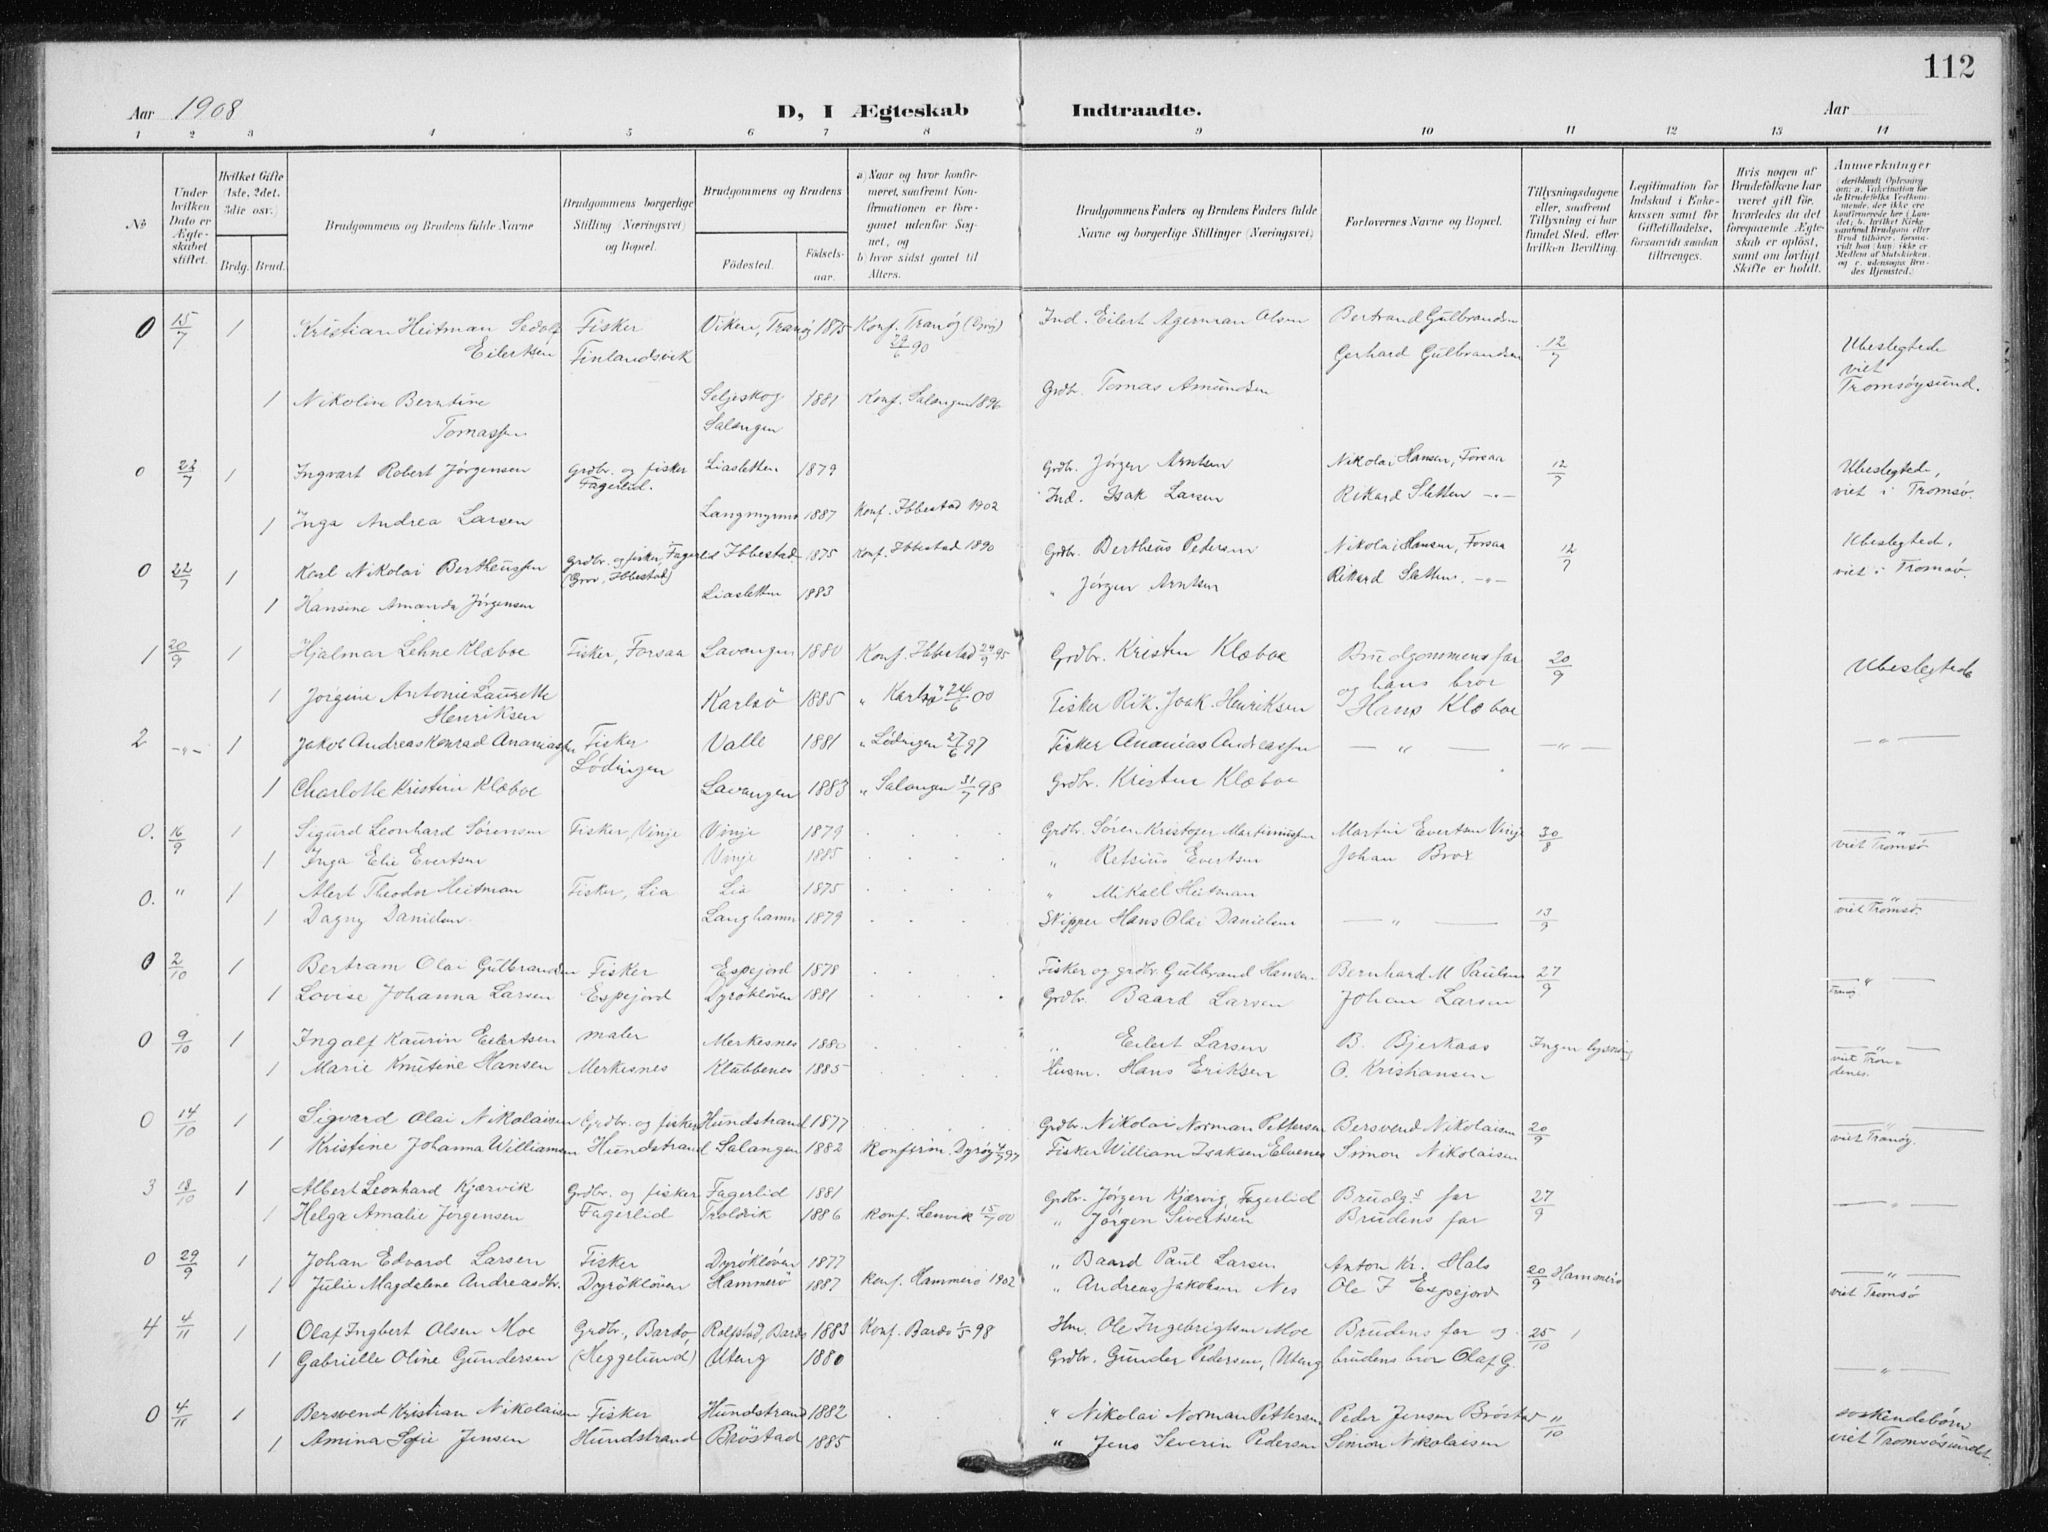 112
Aar 1908 D, I Ægteskab Indtraadte. Aar
1 2 3 4 5 6 7 8 9 10 11 12 13 14
No
Under hvilken Dato er Ægteskabet stiftet.
Hvilket Gifte (1ste, 2det, 3die osv.)
Brdg. Brud.
Brudgommens og Brudens fulde Navne
Brudgommens borgerlige Stilling (Næringsvei) og Bopæl.
Brudgommens og Brudens
Fødested. Fødselsaar.
a) Naar og hvor konfirmeret, saafremt Konfirmationen er foregaaet udenfor Sognet, og b) hvor sidst gaaet til Alters.
Brudgommens Faders og Brudens Faders fulde Navne og borgerlige Stillinger (Næringsvei)
Forlovernes Navne og Bopæl.
Tillysningsdagene eller, saafremt Tillysning ei har fundet Sted, efter hvilken Bevilling.
Legitimation for Indskud i Enkekassen samt for Giftetilladelse, forsaavidt saadan tiltrænges.
Hvis nogen af Brudefolkene har været gift før, hvorledes da det foregaaende Ægteskab er opløst, samt om lovligt Skifte er holdt.
Anmerkninger (deriblandt Oplysning om: a. Vakcination for de Brudefolks Vedkommende, der ikke er konfirmerede her i Landet; b. hvilket Kirkesamfund Brudgom eller Brud tilhører, forsaavidt han (hun) ikke er Medlem af Statskirken, og c. udensogns Brudes Hjemsted.)
0 15/7 1 Kristian Heitman Sedolf Fisker Viken, Tranøy 1875 Konf. Tranøy (Dyrøy) Ind. Eilert Agerman Olsen Bertrand Gulbrandsen
Eilertsen Finlandsvik 29/6 90 Gerhard Gulbrandsen 12/7 Ubeslegtede
viet
1 Nikoline Berntine Seljeskog 1881 Konf. Salangen 1896 Grdbr. Tomas Amundsen Tromsøysund.
Tomassen Salangen
0 22/7 1 Ingvart Robert Jörgensen Grdbr. og fisker Liasletten 1879 Grdbr. Jörgen Arntsen Nikolai Hansen, Forsaa 12/7 Ubeslegtede,
Fagerlid. Ind. Isak Larsen Rikard Sletten -"- viet i Tromsø.
1 Inga Andrea Larsen Langmyrmo 1887 Konf. Ibbestad 1902
0 22/7 1 Karl Nikolai Bertheussen Grdbr. og fisker, Fagerlid Ibbestad 1875 Konf. Ibbestad 1890 Grdbr. Bertheus Pedersen Nikolai Hansen, Forsaa 12/7 Ubeslegtede,
(Grov, Ibbestad) Rikard Sletten -"- viet i Tromsø.
1 Hansine Amanda Jörgensen Liasletten 1883 " Jörgen Arntsen
1 20/9 1 Hjalmar Lehne Klæboe Fisker, Forsaa Lavangen 1880 Konf. Ibbestad 24/9 95 Grdbr. Kristen Klæboe Brudgommens far 20/9 Ubeslegtede
og hans bror
1 Jörgine Antonie Laurette Karlsö 1885 " Karlsö 24/6 00 Fisker Rik. Joak. Henriksen Hans Klæboe
Henriksen
2 -"- 1 Jakob Andreas Konrad Ananiassen Fisker Valle 1881 " Lödingen 27/6 97 Fisker Ananias Andreassen — " — — " — — " —
Lödingen
1 Charlotte Kristine Klæboe Lavangen 1883 " Salangen 31/7 98 Grdbr. Kristen Klæboe
0. 16/9 1 Sigurd Leonhard Sörensen Fisker, Vinje Vinje 1879 Grdbr. Sören Kristofer Martinussen Martin Evertsen Vinje 30/8 — " —
1 Inga Elie Evertsen Vinje 1885 " Retsius Evertsen Johan Brox viet Tromsø
0. " 1 Alert Theodor Heitman Fisker, Lia Lia 1875 " Mikael Heitman — " —
1 Dagny Danielsen Langhamn 1879 Skipper Hans Olai Danielsen — " — 13/9 viet Tromsø.
0 2/10 1 Bertram Olai Gulbrandsen Fisker Espejord 1878 Fisker og grdbr. Gulbrand Hansen Bernhard M Paulsen 27/9 — " —
1 Lovise Johanna Larsen Espejord Dyröklöven 1881 Grdbr. Baard Larsen Johan Larsen
0 9/10 1 Ingolf Kaurin Eilertsen maler Merkesnes 1880 " Eilert Larsen B. Bjerkaas Ingen lysning — " —
1 Marie Knutine Hansen Merkesnes Klubbenes 1885 Husm. Hans Eriksen O. Kristiansen viet Trondenes.
0 14/10 1 Sigvard Olai Nikolaisen Grdbr. og fisker Hundstrand 1877 Grdbr. Nikolai Norman Pettersen Bersvend Nikolaisen 20/9 — " —
1 Kristine Johanna Williamsen Hundstrand Salangen 1882 Konfirm. Dyrøy 4/7 97 Fisker William Isaksen Elvenes Simon Nikolaisen viet Tranöy.
3 18/10 1 Albert Leonhard Kjærvik Grdbr. og fisker Fagerlid 1881 Grdbr. Jörgen Kjærvig Fagerlid Brudg.s far 27/9 — " —
1 Helga Amalie Jörgensen Fagerlid Troldvik 1886 Konf. Lenvik 15/7 00 " Jörgen Sivertsen Brudens far
0 29/9 1 Johan Edvard Larsen Fisker Dyröklöven 1877 " Baard Paul Larsen Anton Kr. Hals 20/9 Hammerö — " —
1 Julie Magdelene Andreasdtr. Dyröklöven Hammerö 1887 Konf. Hammerö 1902 " Andreas Jakobsen Nes Ole J Espejord viet Tromsø
4 4/11 1 Olaf Ingbert Olsen Moe Grdbr., Bardo Rolfstad, Bardo 1883 Konf. Bardo 1/5 98 Hm. Ole Ingebrigtsen Moe Brudens far og 25/10
1 Gabrielle Oline Gundersen (Heggelund) Uteng 1880 Grdbr. Gunder Pedersen, Uteng brudens bror Olaf G. — " —
0 4/11 1 Bersvend Kristian Nikolaisen Fisker Hundstrand 1882 " Nikolai Norman Pettersen Peder Jensen Bröstad 11/10 söskendebörn
1 Amina Sofie Jensen Hundstrand Bröstad 1885 " Jens Severin Pedersen Simon Nikolaisen viet Tromsösundet.